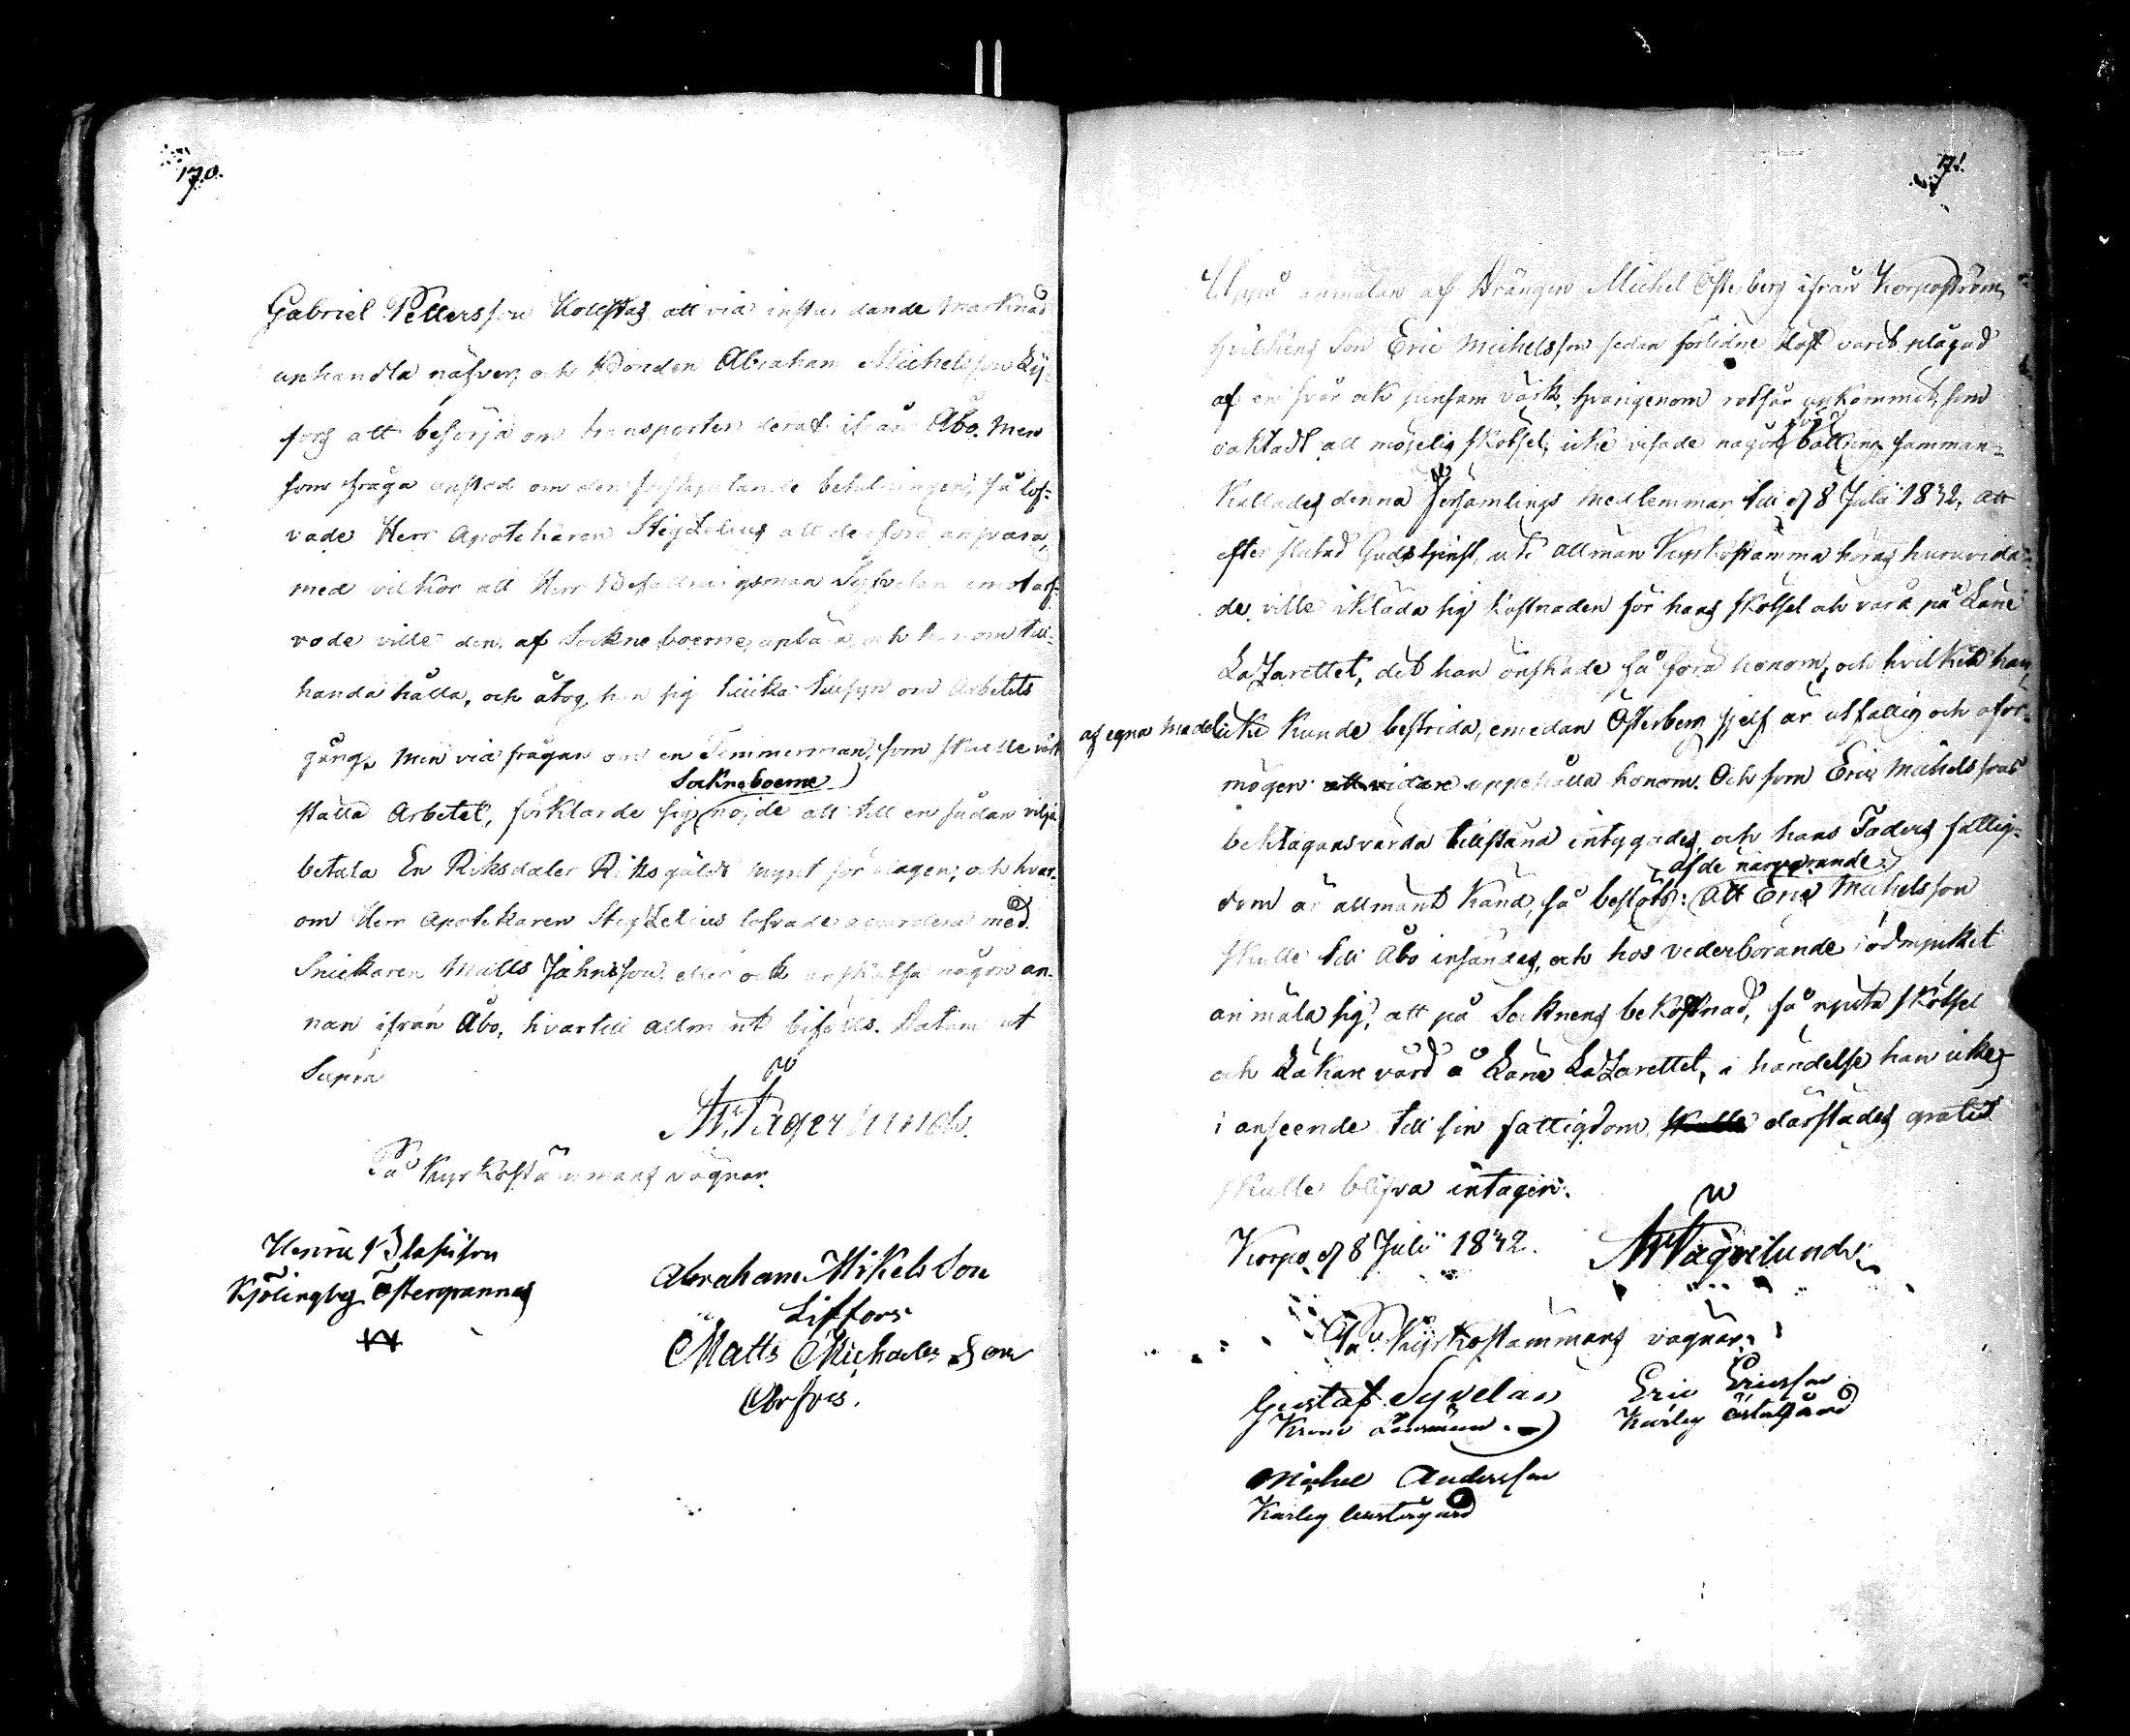 170.
Gabriel Pettersson Kollstas att vid instundande Marknad
uphandla näfver, och Bonden Abraham Michelsson Ly-
fors att besörja om transporten deraf ifrån Åbo. Men
som fråga upstod om den betalningen, så lof-
vade Herr Apothekaren Stigzelius att derföre ansvara,
med vilkor att Herr Befallningsman Syvelan emot arf-
vode ville den, af Sockneboerne, upbära, och honom till-
handa hålla, och åtog han sig tillika tillsyn om Arbetets
gång. Men vid frågan om en Timmerman, som skulle verk-
Sockneboerne
ställa Arbetet, förklarde sig nöjde att till en sådan vilja
betala En Riksdaler Riksgälds mynt för dagen; och hvar-
om Herr Apothekaren Stigzelius lofvade accordera med
Snickaren Matts Jahnsson, eller ock anskaffa någon an-
nan ifrån Åbo, hvartill allmänt bifölls. Datum ut
Supra
Fagerlund.
På Kyrkostämmans vägnar.
Henric Blasisson
Kjölingby Östergrannas
Abraham Mikels Son
Liffors
Matts Michaels Son
171.
Uppå anmälan af Drängen Michel Österberg ifrån Korpoström,
hvilkens Son Eric Michelsson sedan förlidne Höst varit plågad
af en svår och pinsam värk, hvarigenom rötsår upkommit, som
oaktadt all möjelig skötsel, icke visade någon bättring, samman-
Kallades denna Församlings medlemmar till d 8 Julii 1832, att
efter slutad Gudstjenst, uti allmän Kyrkostämma höras huruvida
de ville ikläda sig kostnaden för hans skötsel och vård på Läne
Lazarettet, det han önskade få föra honom, och hvilket han,
af egna medel icke kunde bestrida, emedan Österberg sjelf är utfattig och oför-
mögen att vidare uppehålla honom. Och som Eric Michelssons
beklagansvärda tillstånd intygades, och hans Faders fattig-
af de närvarande
dom är allmänt känd, så beslöts: Att Eric Michelsson
skulle till Åbo insändas, och hos vederbörande ödmjukt
anmäla sig, att på Socknens bekostnad, få njuta skötsel
och Läkare vård å Läne Lazarettet, i händelse han icke
i anseende till sin fattigdom, skulle därstädes gratis
skulle blifva intagen.
Korpo d 8 Julii 1832.
Fagerlund.
På Kyrkostämmans vägnar.
Gustaf Syvelan
Krono Länsman.
Eric Ericsson
Kårley Östergård
Michel Andersson
Kårley Westergård